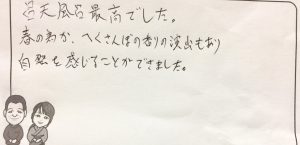 呂天風呂最高でした。
春の為か、へくさんぼの香りの演出もあり
自然を感じることができました。